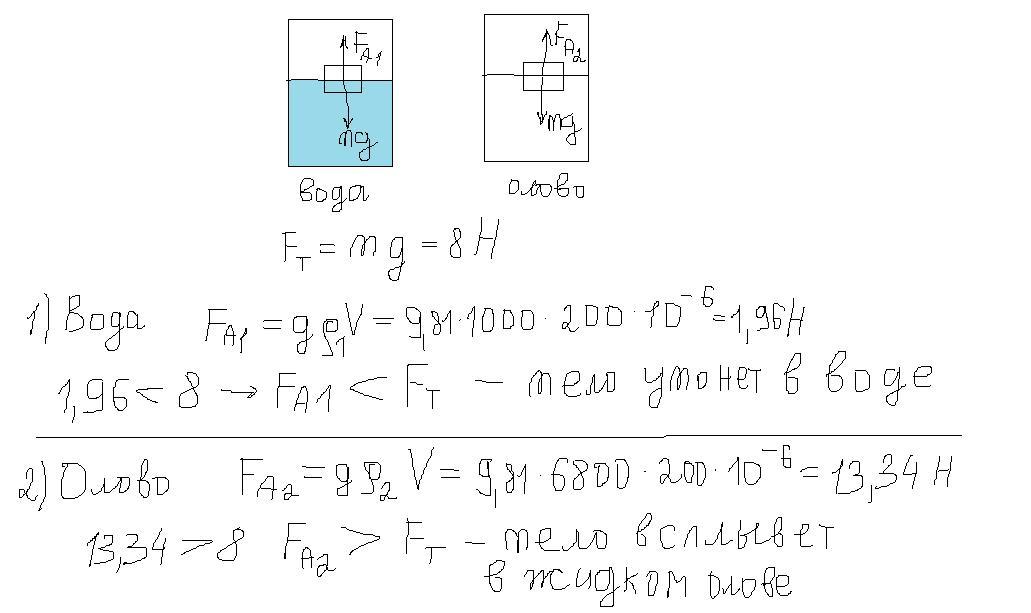 F_A1 F_A2
mg mg
вода олово
F_T = mg = 8 Н
1) Вода F_A1 = gρ_1V = 9,81·1000·200·10^-6 = 1,96Н
1,96 < 8 → F_A1 < F_T — тело утонет в воде
2) Олово F_A2 = gρ_2V = 9,81·6800·200·10^-6 = 13,34 Н
13,34 > 8 F_A2 > F_T — тело всплывет
в жидком олове